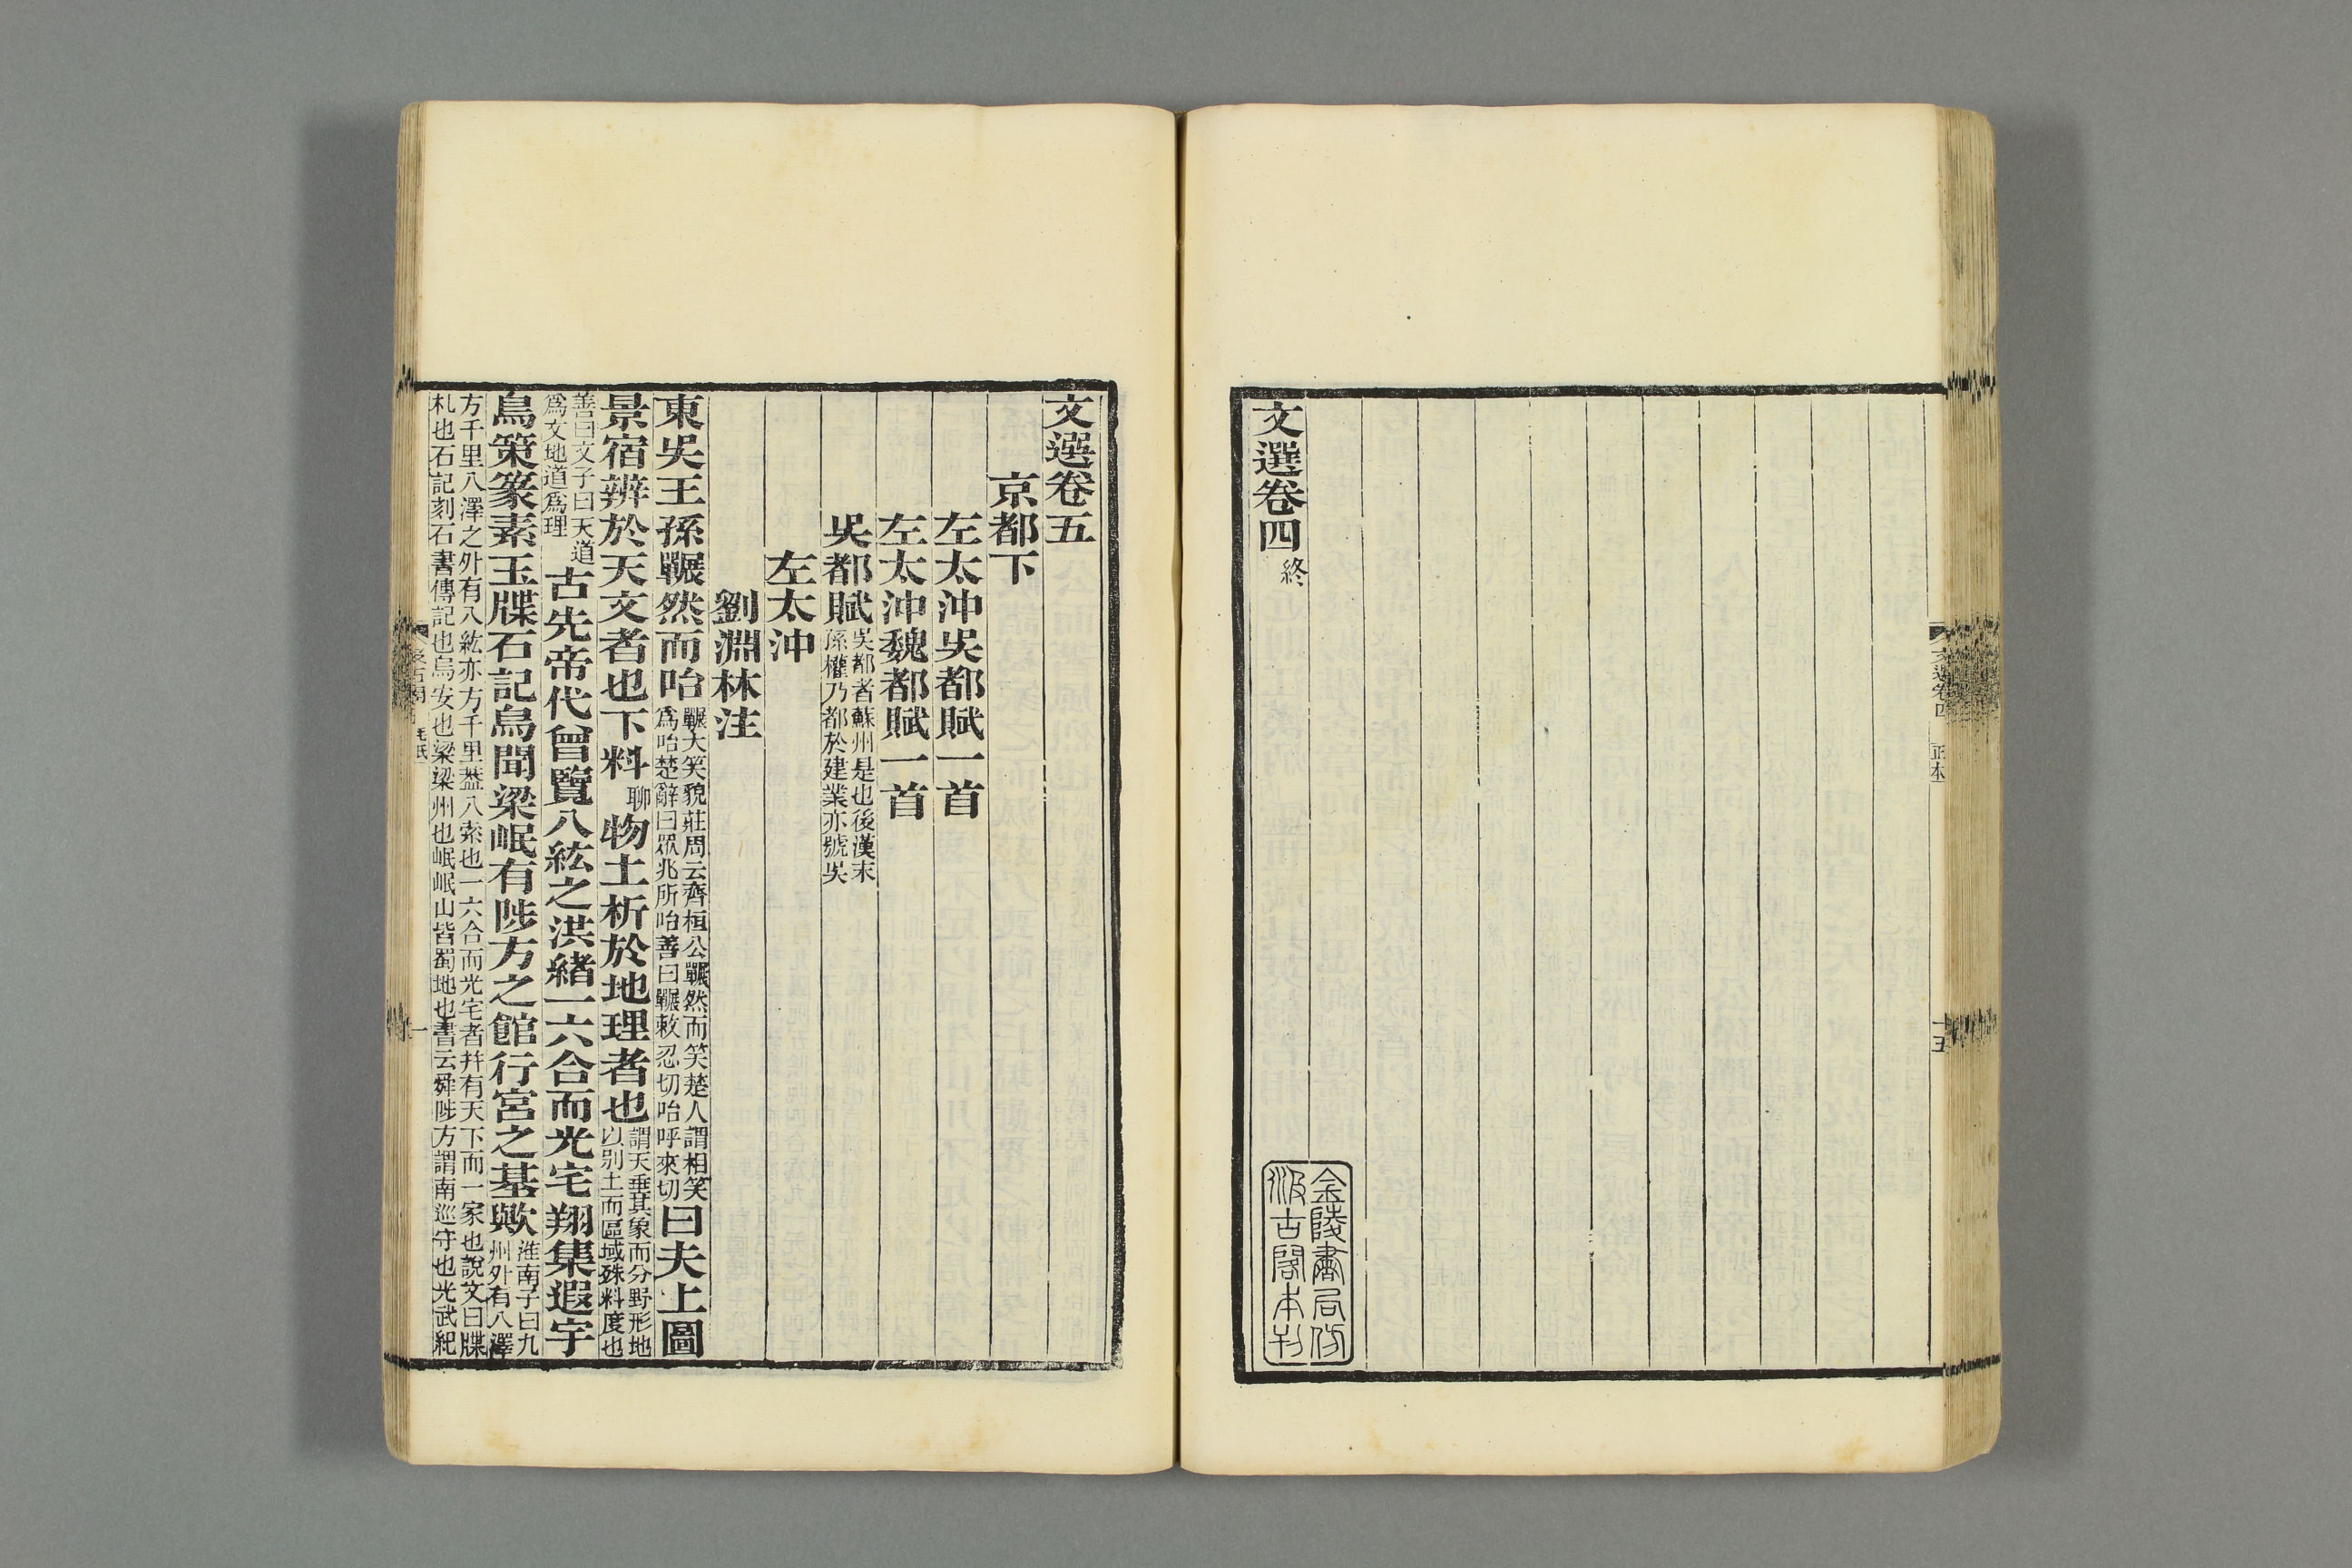 文選卷四終
金陵書局仿
汲古閣本刊
文選卷五
京都下
左太沖吳都賦一首
左太沖魏都賦一首
吳都賦吳都者蘇州是也後漢末孫權乃都於建業亦號吳
左太沖
劉淵林注
東吳王孫囅然而咍囅大笑貌莊周云齊桓公囅然而笑楚人謂相笑為咍楚辭曰眾兆所咍善曰囅敕忍切咍呼來切曰夫上圖
景宿辨於天文者也下料聊物土析於地理者也謂天垂其象而分野形地以别土而區域殊料度也
善曰文子曰天道為文地道為理古先帝代曾覽八紘之洪緒一六合而光宅翔集遐宇
鳥策篆素玉牒石記烏聞梁岷有陟方之館行宮之基歟淮南子曰九州外有八澤
方千里八澤之外有八紘亦方千里葢八索也一六合而光宅者并有天下而一家也說文曰牒
札也石記刻石書傳記也烏安也梁梁州也岷岷山皆蜀地也書云舜陟方謂南巡守也光武紀